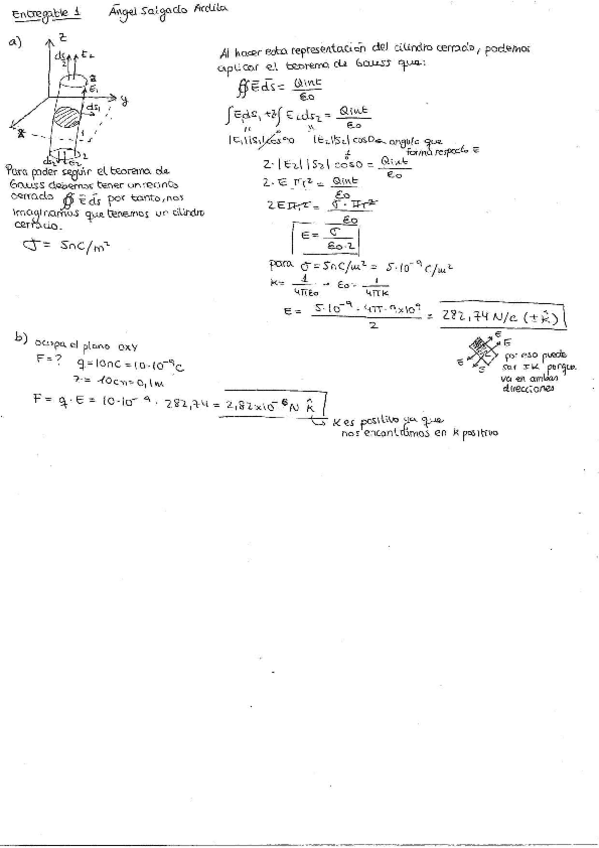 Entregable 1 Ángel Salgado Ardila
a)
z
y
x
ds2 E2
2
E1
ds1
1
ds2 E2 2
Para poder seguir el teorema de
Gauss debemos tener un recinto
cerrado ∯ E ds por tanto, nos
imaginamos que tenemos un cilindro
cerrado.
σ = 5nC/m²
Al hacer esta representación del cilindro cerrado, podemos
aplicar el teorema de Gauss que:
∯ E ds = Qint/εo
∫E1ds1 + 2∫E2ds2 = Qint/εo
|E1||S1|cos90 |E2||S2|cos0 → angulo que
forma respecto E
2·|E2||S2|cos0 = Qint/εo
2·E πr² = Qint/εo
2Eπr² = σ·πr²/εo
E = σ/εo·2
para σ = 5nC/m² = 5·10⁻⁹ C/m²
K = 1/4πεo → εo = 1/4πK
E = 5·10⁻⁹·4π·9x10⁹/2 = 282,74 N/C (±k̂)
E
E
E
E
por eso puede
ser ±K porque
va en ambas
direcciones
b) ocupa el plano OXY
F = ? q = 10nC = 10·10⁻⁹C
z = 10cm = 0,1m
F = q·E = 10·10⁻⁹ · 282,74 = 2,82x10⁻⁶N k̂
K es positivo ya que
nos encontramos en K positivo